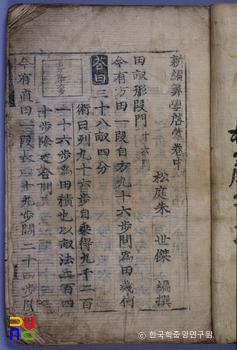 新編算學啓蒙卷中
松庭朱　世傑　編撰
田畝形段門
今有方田一段自方九十六步問爲田幾何
答曰三十八畝四分
術曰列九十六步自乗得九千二百
一十六步爲田積也以畝法二百四
十步除之合問
今有直田一段長四十九步闊二十四步
© 한국학중앙연구원